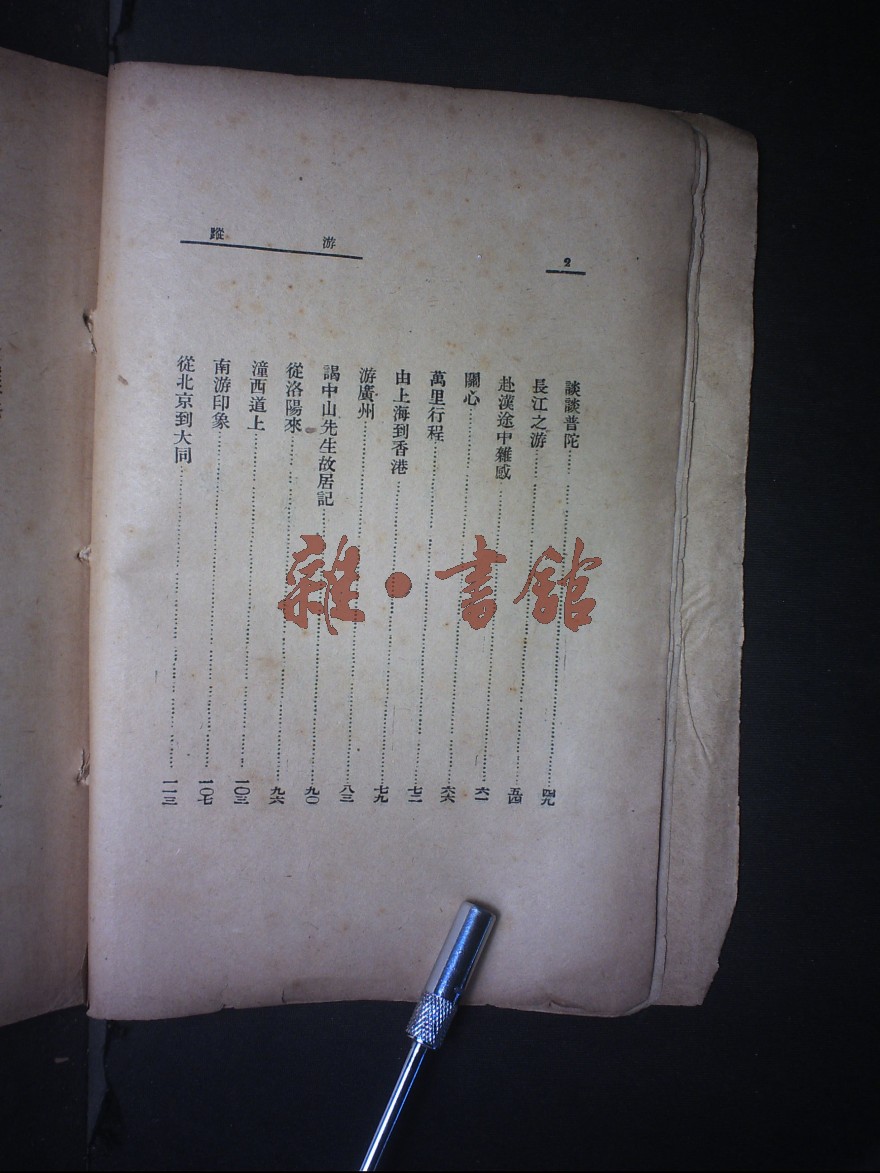 游蹤
2
談談普陀……四九
長江之游……五四
赴漢途中雜感……六一
關心……六六
萬里行程……七二
由上海到香港……七九
游廣州……八三
謁中山先生故居記……九〇
從洛陽來……九六
潼西道上……一〇三
南游印象……一〇七
從北京到大同……一一三
雜·書館